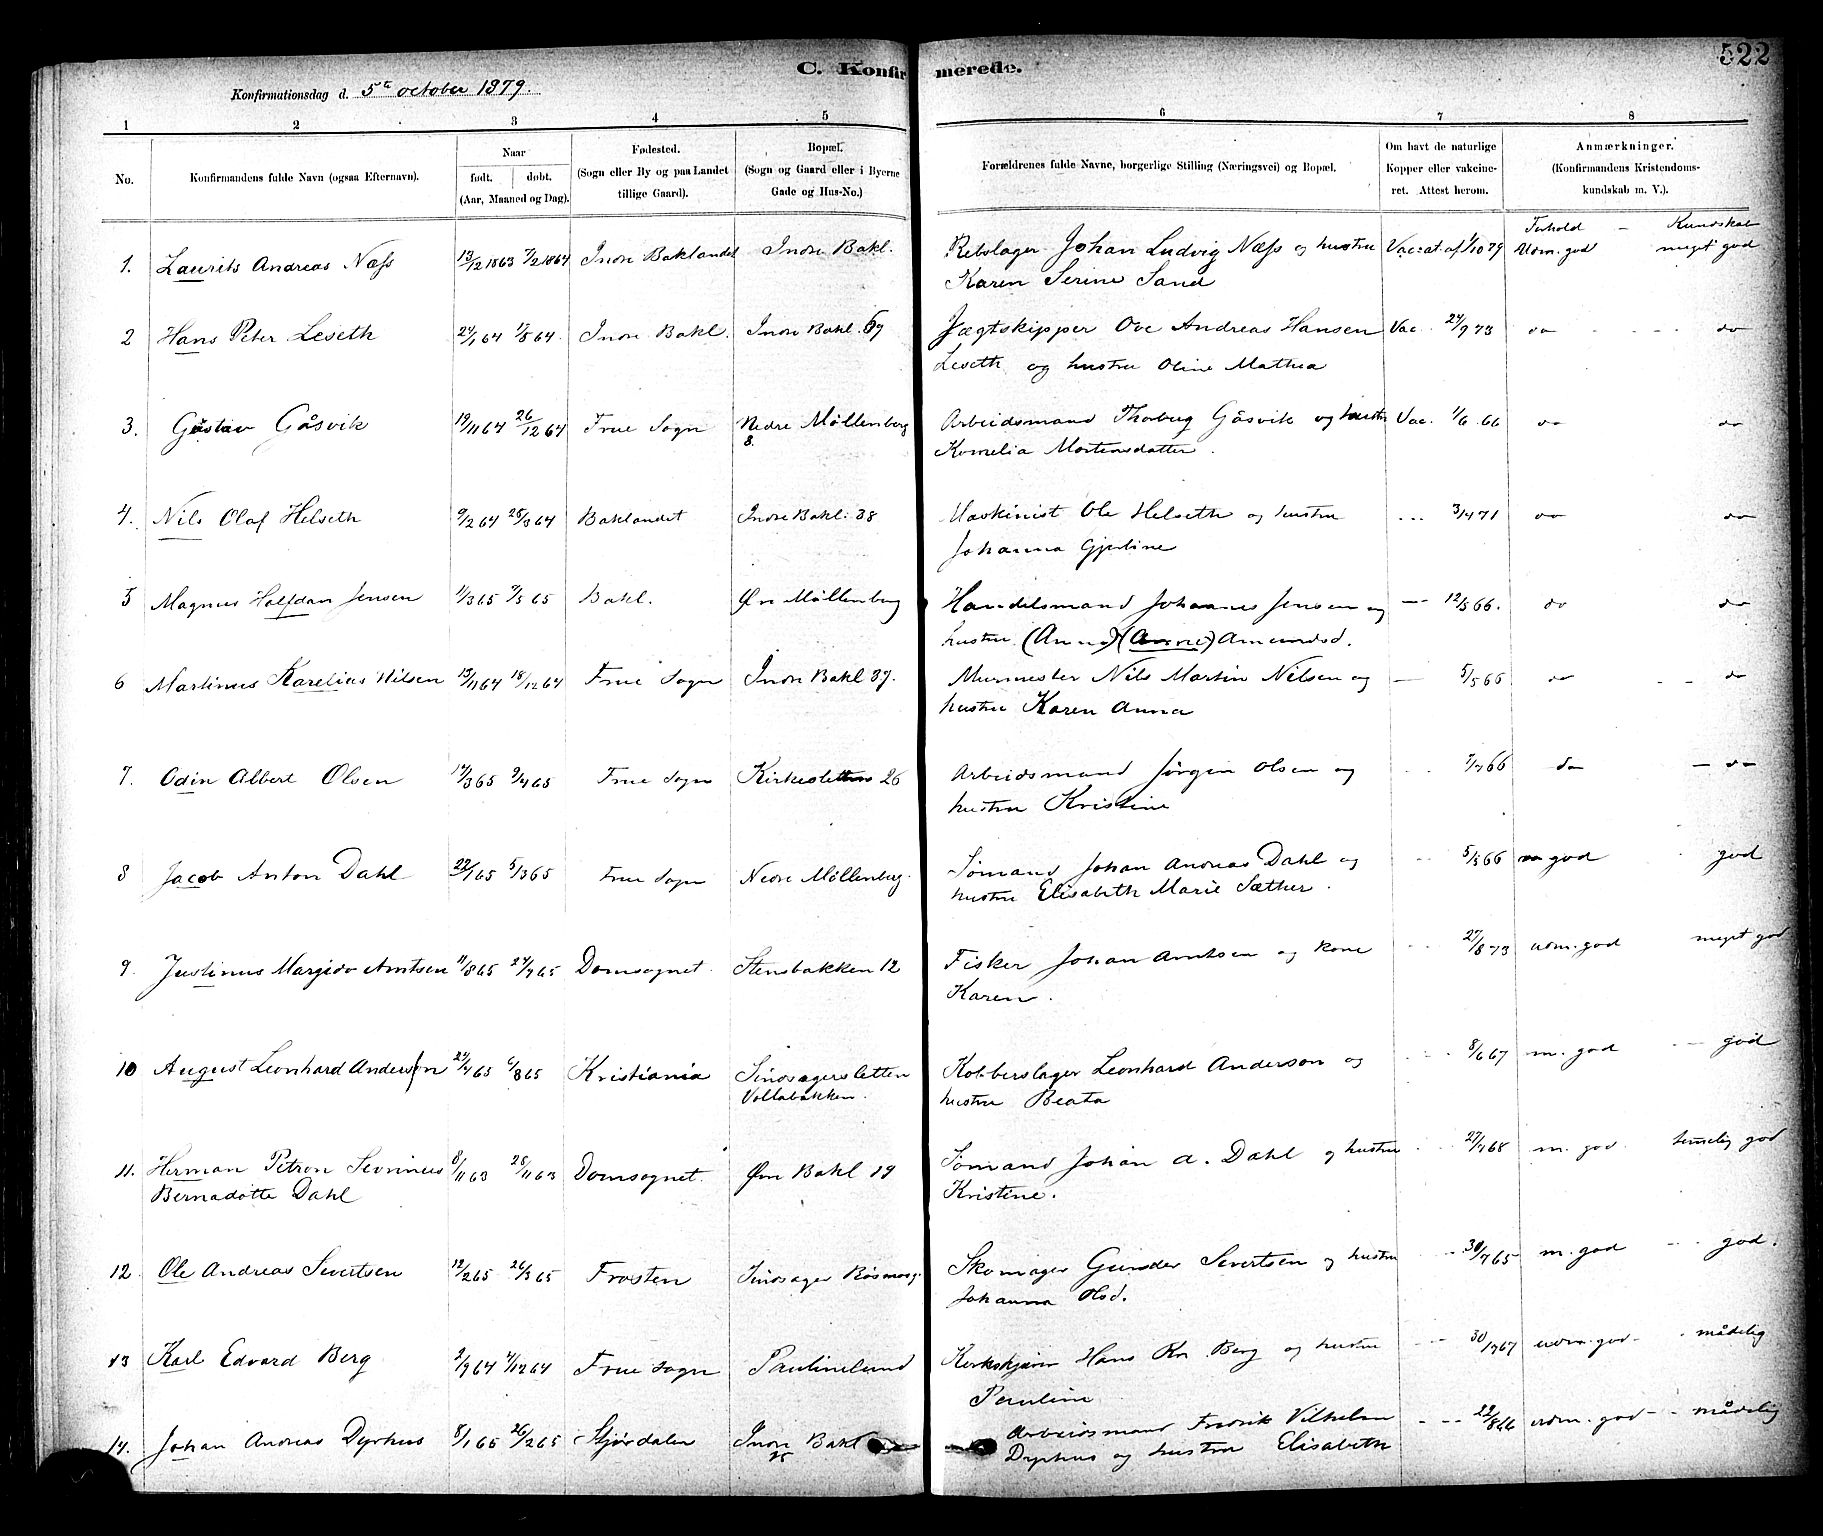 522
C. Konfirmerede.
Konfirmationsdag d. 5te october 1879.
1 2 3 4 5 6 7 8
No.
Konfirmandens fulde Navn (ogsaa Efternavn).
Naar
født. døbt.
(Aar, Maaned og Dag).
Fødested.
(Sogn eller By og paa Landet
tillige Gaard).
Bopæl.
(Sogn og Gaard eller i Byerne
Gade og Hus-No.)
Forældrenes fulde Navne, borgerlige Stilling (Næringsvei) og Bopæl.
Om havt de naturlige
Kopper eller vakcine-
ret. Attest herom.
Anmærkninger.
(Konfirmandens Kristendoms-
kundskab m. V.).
Forhold - Kundskab
1. Laurits Andreas Næss 13/12 1863 7/2 1864 Indre Baklandet Indre Bakl. Rebslager Johan Ludvig Næss og hustru Vac. at. af 1/10 79 Udm. god meget god
Karen Serine Sand
2 Hans Peter Leseth 24/1 64 1/5 64 Indre Bakl. Indre Bakl. 59 Jægtskipper Ove Andreas Hansen Vac. 24/9 73 do do
Leseth og hustru Oline Mathea
3. Gustav Gåsvik 19/11 64 26/12 64 Frue Sogn Nedre Möllenberg Arbeidsmand Thorberg Gåsvik og hustru Vac. 1/6 66 do do
8. Kornelia Mortensdatter.
4. Nils Olaf Helseth 9/2 64 28/3 64 Baklandet Indre Bakl. 38 Maskinist Ole Helseth og hustru 3/4 71 do do
Johanna Gjertine
5 Magnus Halfdan Jensen 1/3 65 7/5 65 Bakl. Øvr Möllenberg Handelsmand Johannes Jensen og 12/5 66. do do
hustru (Anna) (Anne) Amundsd.
6 Martinus Karelius Nilsen 13/11 64 18/12 64 Frue Sogn Indre Bakl 37. Murmester Nils Martin Nilsen og 5/5 66 do do
hustru Karen Anna
7. Odin Albert Olsen 14/3 65 9/4 65 Frue Sogn Kirkesletten 26 Arbeidsmand Jörgen Olsen og 7/7 66 do do
hustru Kristine
8 Jacob Anton Dahl 22/1 65 5/3 65 Frue Sogn Nedre Möllenberg. Sömand Johan Andreas Dahl og 5/5 66 m god god
hustru Elisabeth Marie Sæther.
9. Justinus Margido Arntsen 11/8 65 24/9 65 Domsognet. Stensbakken 12 Fisker Johan Arntsen og kone 27/8 73 udm. god meget god
Karen.
10 August Leonhard Anderson 23/4 65 6/8 65 Kristiania Sindsagersletten Kobberslager Leonhard Anderson og 8/6 67 m. god god
Vollabakken. hustru Beata
11. Herman Petron Severinus 8/11 63 28/11 63 Domsognet. Øvr Bakl 19 Sömand Johan A. Dahl og hustru 27/4 68 m. god temelig god
Bernadotte Dahl Kristine.
12. Ole Andreas Sivertsen 12/2 65 26/3 65 Frosten Sindsager Skomager Gunder Sivertsen og hustru 30/7 65 m. god god.
Johanna Olsd.
13 Karl Edvard Berg 2/9 64 4/12 64 Frue Sogn Paulinelund Hans Kr. Berg og hustru 30/1 67 udm. god mådelig
Pauline
14. Johan Andreas Dyrhus 8/1 65 26/2 65 Stjördalen Indre Bakl Arbeidsmand Fredrik Vilhelm 22/8 66 udm. god mådelig
25 Dyrhus og hustru Elisabeth